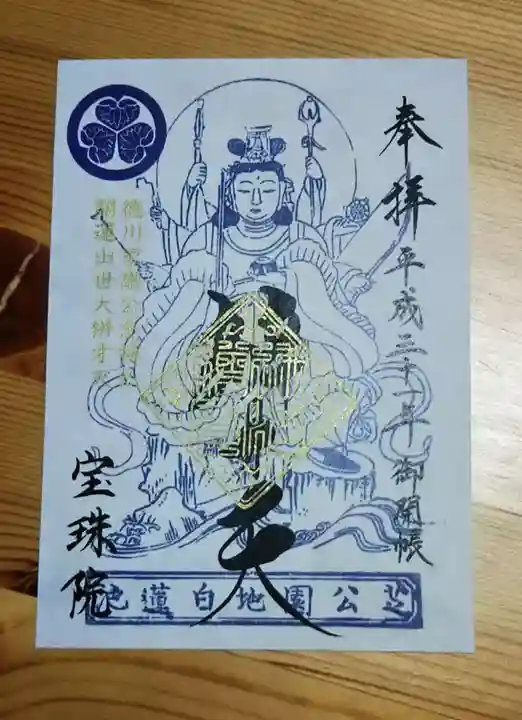 奉拝 平成三十一年 御開帳
徳川家康公
開運出世大辦才天
天
宝珠院
芝公園地白蓮池